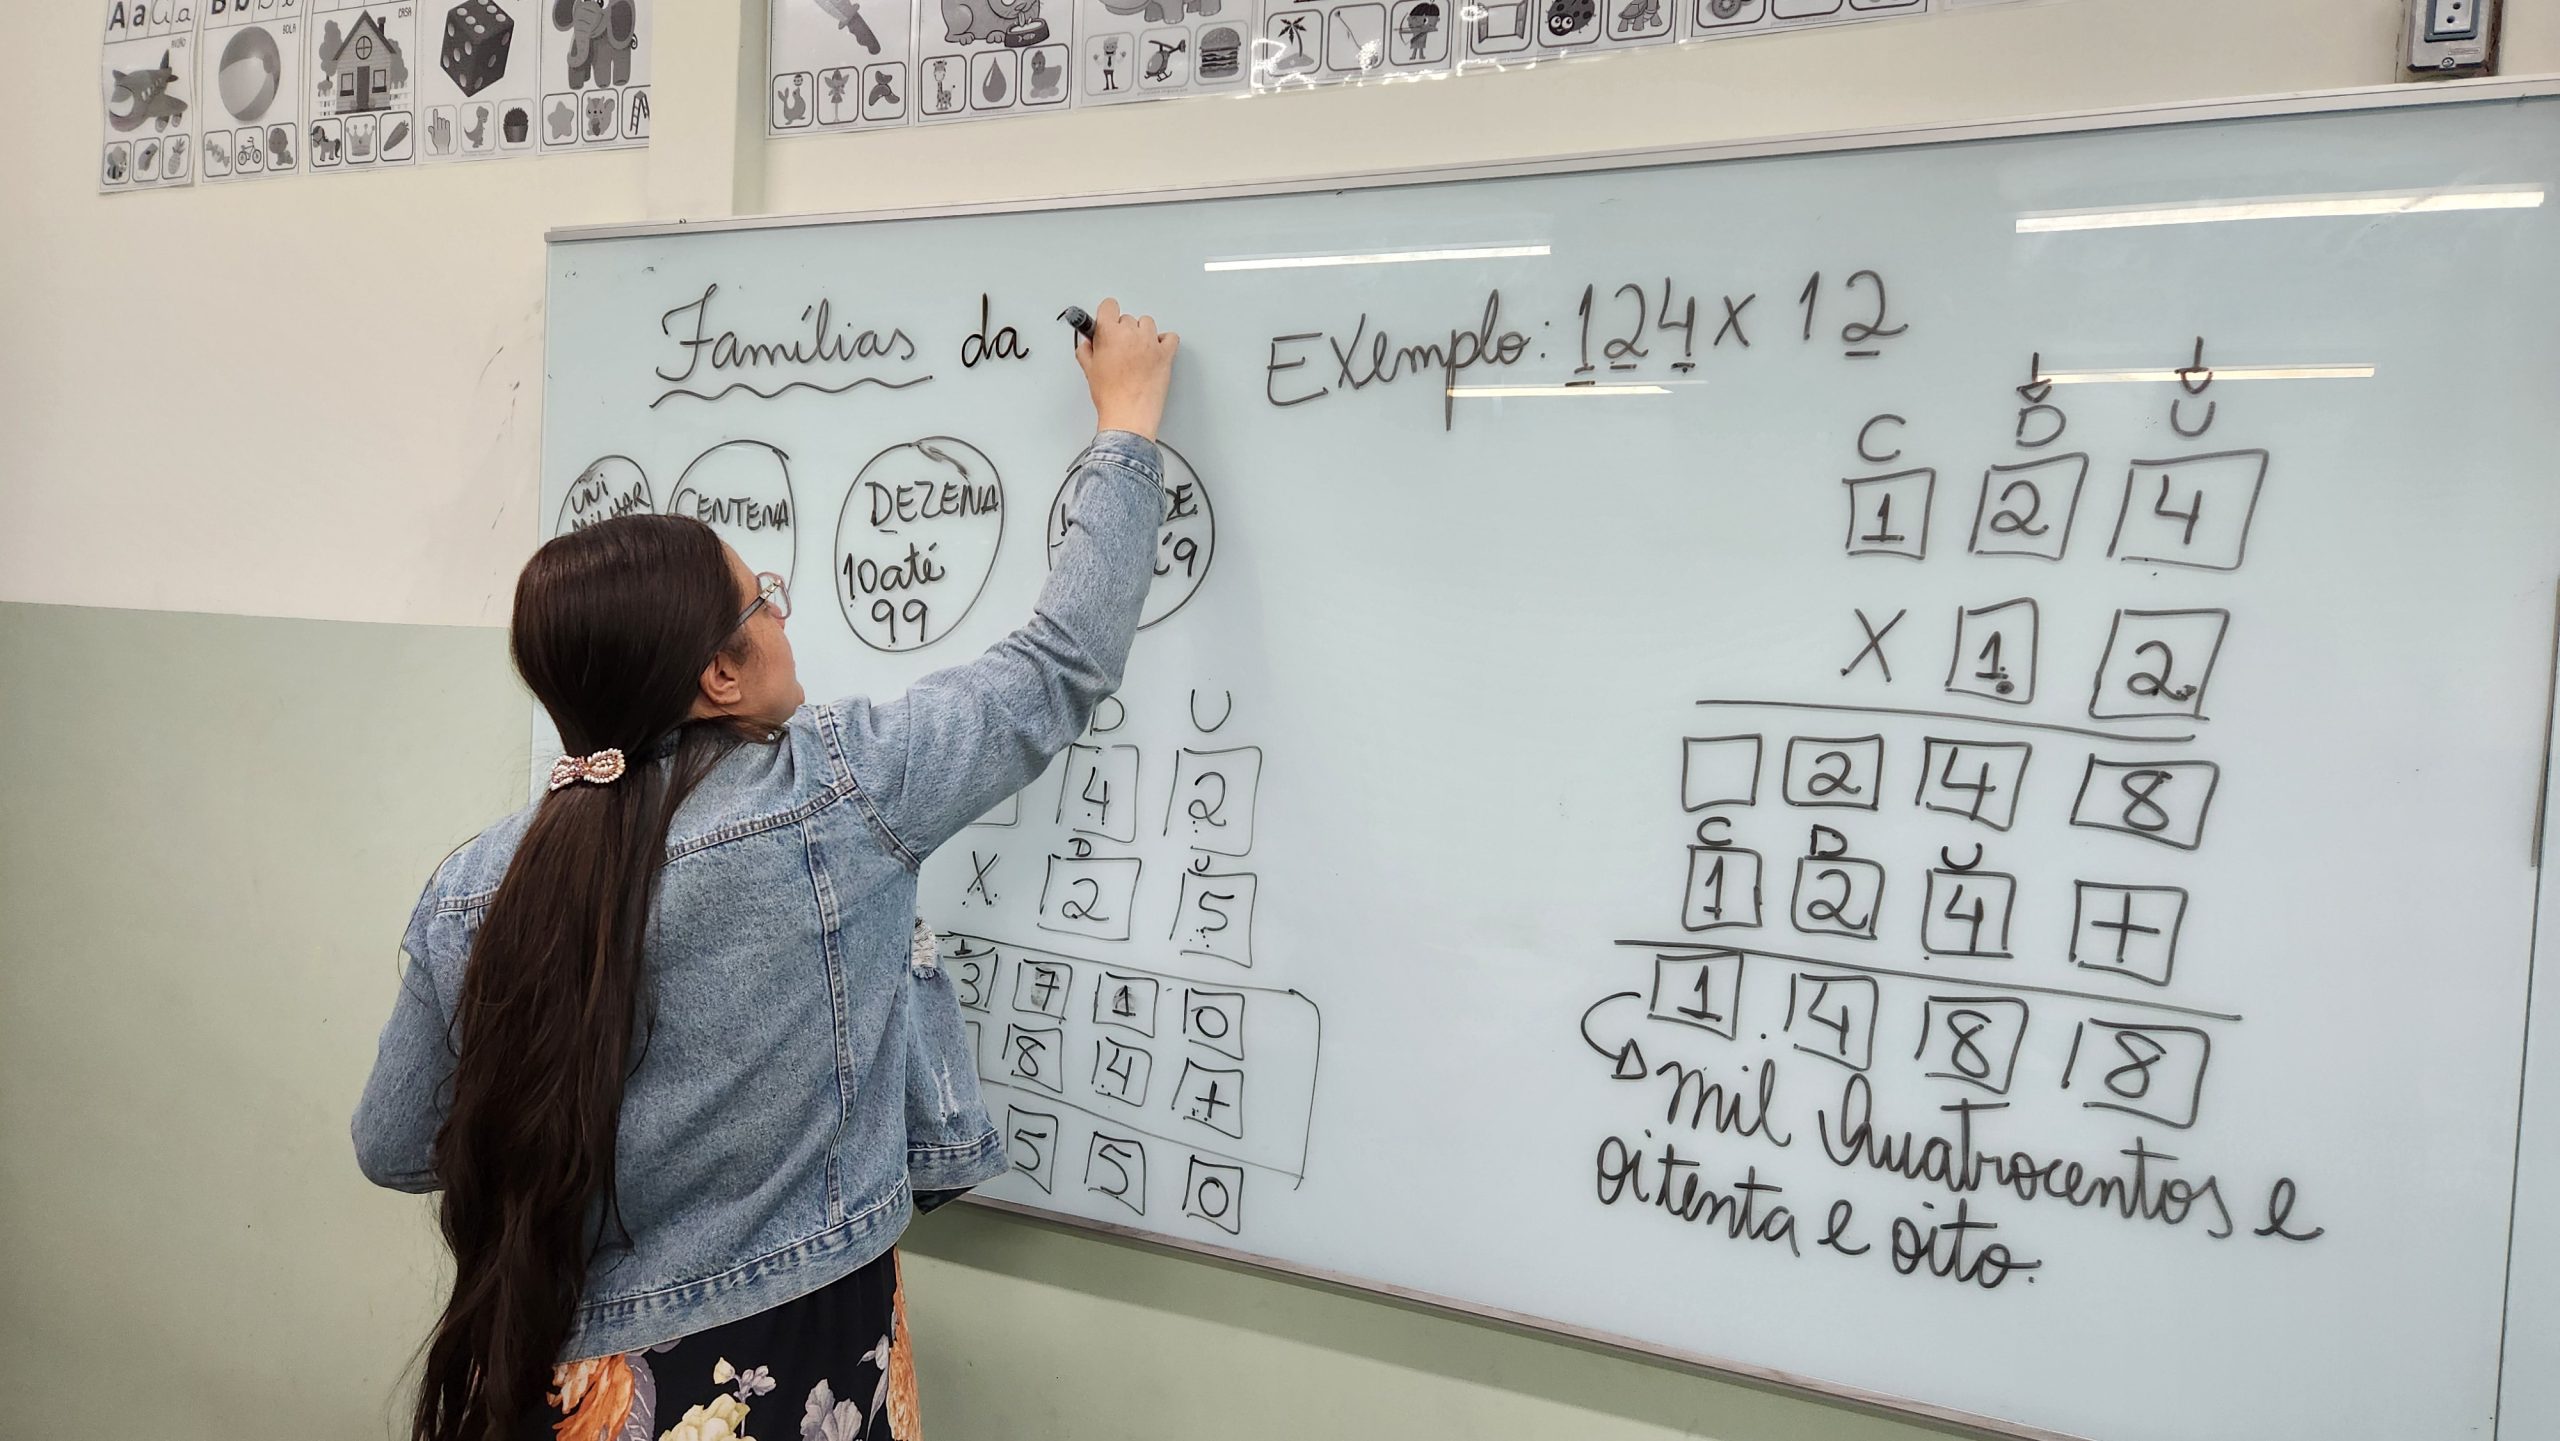 Aa
Bb
AVIÃO
BOLA
CASA
Famílias da
Exemplo: 124 x 12
UNI
MILHAR
CENTENA
DEZENA
10 até
99
C D U
1 2 4
X 1 2
2 4 8
C D U
1 2 4 +
1.4 8 8
mil quatrocentos e
oitenta e oito.
D U
4 2
D U
X 2 5
1
3 7 1 0
8 4 +
5 5 0